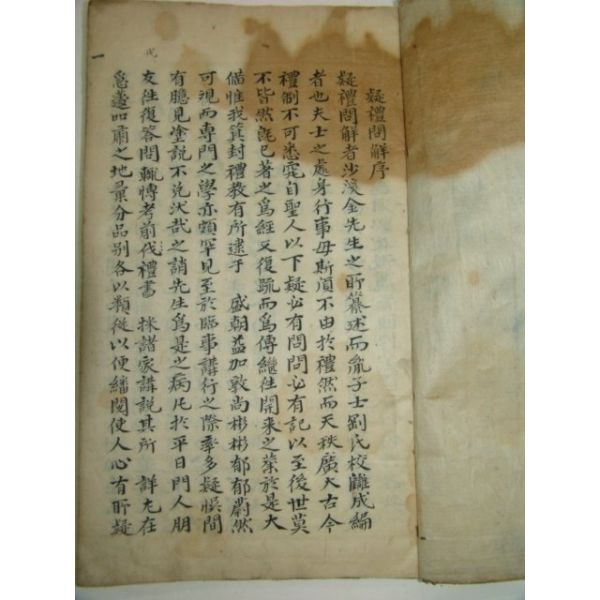 疑禮問解序
疑禮問解者沙溪金先生之所纂述而胤子士剛氏校讎成編
者也夫士之處身行事毋斯須不由於禮然而天秩廣大古今
禮制不可悉究自聖人以下疑必有問問必有記以至後世莫
不皆然旣已著之爲經又復疏而爲傳繼往開來之業於是大
備惟我箕封禮敎有所逮乎 盛朝益加敦尚彬彬郁郁蔚然
可視而專門之學亦頗罕見至於臨事講行之際率多疑悞間
有臆見塗說不免汰哉之誚先生爲是之病凡於平日門人朋
友往復答問輒博考前代禮書 採諸家講說其所 詳尤在
急遽叩之地彙分品別各以類從以便繙閱使人心有所疑